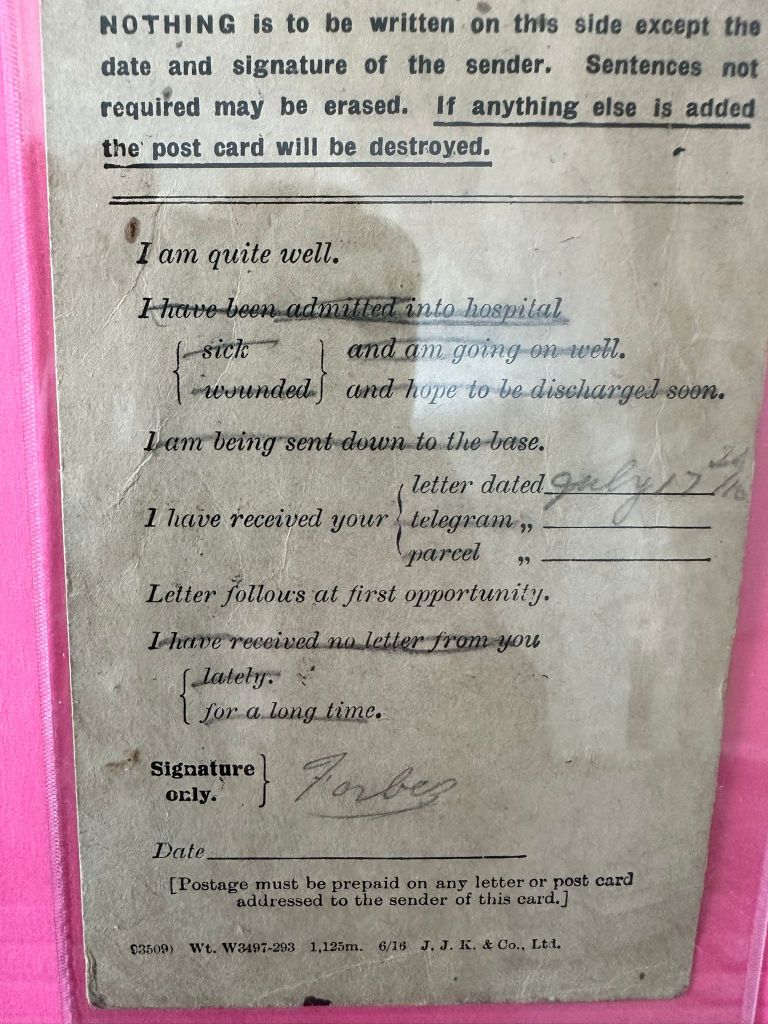 NOTHING is to be written on this side except the
date and signature of the sender. Sentences not
required may be erased. If anything else is added
the post card will be destroyed.
I am quite well.
I have been admitted into hospital
sick and am going on well.
wounded and hope to be discharged soon.
I am being sent down to the base.
letter dated July 17
I have received your telegram „
parcel „
Letter follows at first opportunity.
I have received no letter from you
lately.
for a long time.
Signature
only. Forbes
Date
[Postage must be prepaid on any letter or post card
addressed to the sender of this card.]
93509) Wt. W3497-293 1,125m. 6/16 J. J. K. & Co., Ltd.